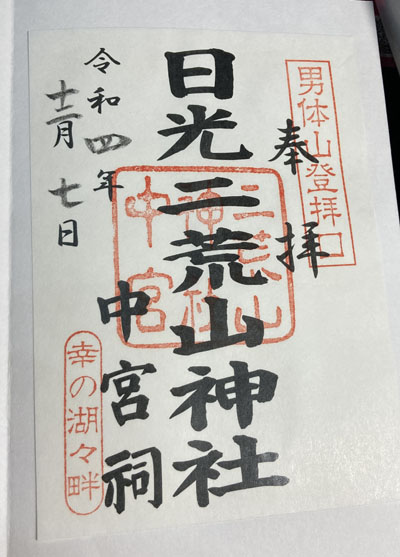 男体山登拝口
奉拝
日光二荒山神社
二荒山
神社
中宮
中宮祠
幸の湖々畔
令和四年
十二月七日